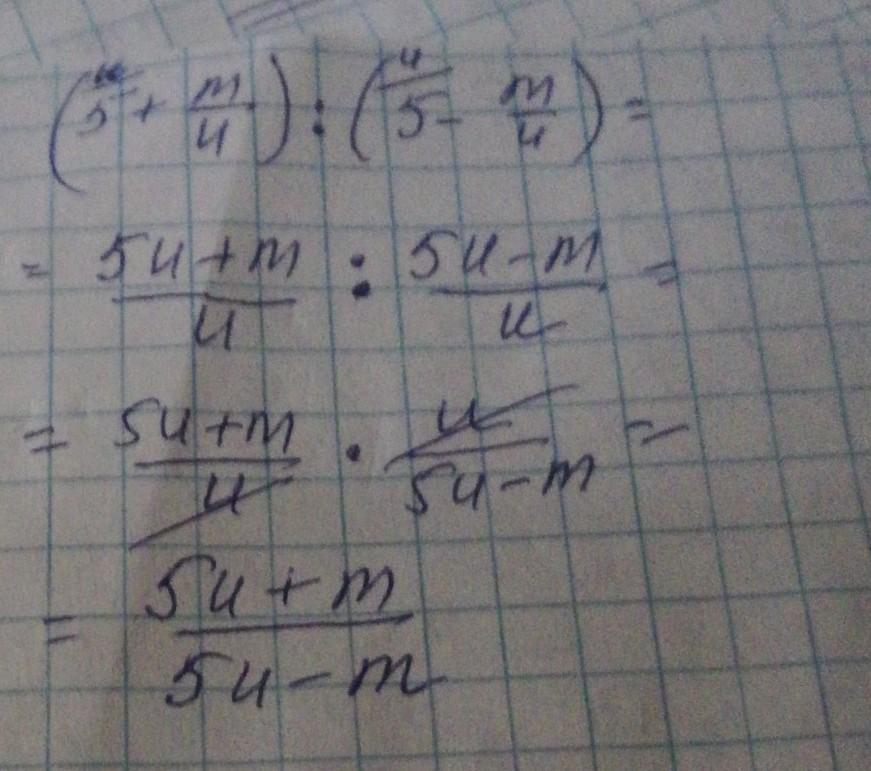 (5 + m/u) : (5 - m/u) =
= (5u + m)/u : (5u - m)/u =
= (5u + m)/u · u/(5u - m) =
= (5u + m)/(5u - m)